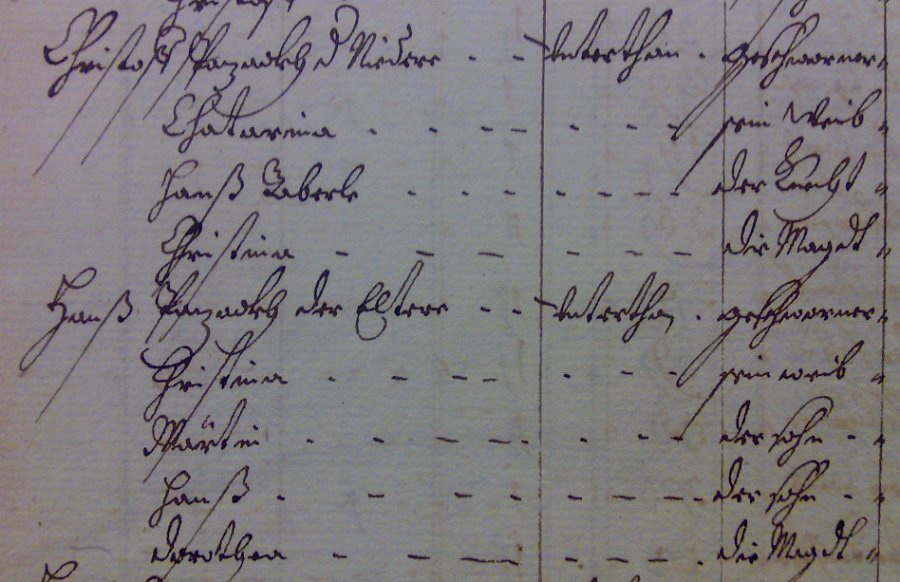 Christoff Panzackh d Niedere - - Unterthan - geschworner
Chatarina - - - - - - - sein Weib
Hanß Taberle - - - - - - - der Knecht
Christina - - - - - - die Magdt
Hanß Panzackh der Eltere - - Unterthan - geschworner
Christina - - - - - - - sein weib
Märtin - - - - - - - der sohn - -
Hanß - - - - - - - - der sohn - -
dorothea - - - - - - die Magdt